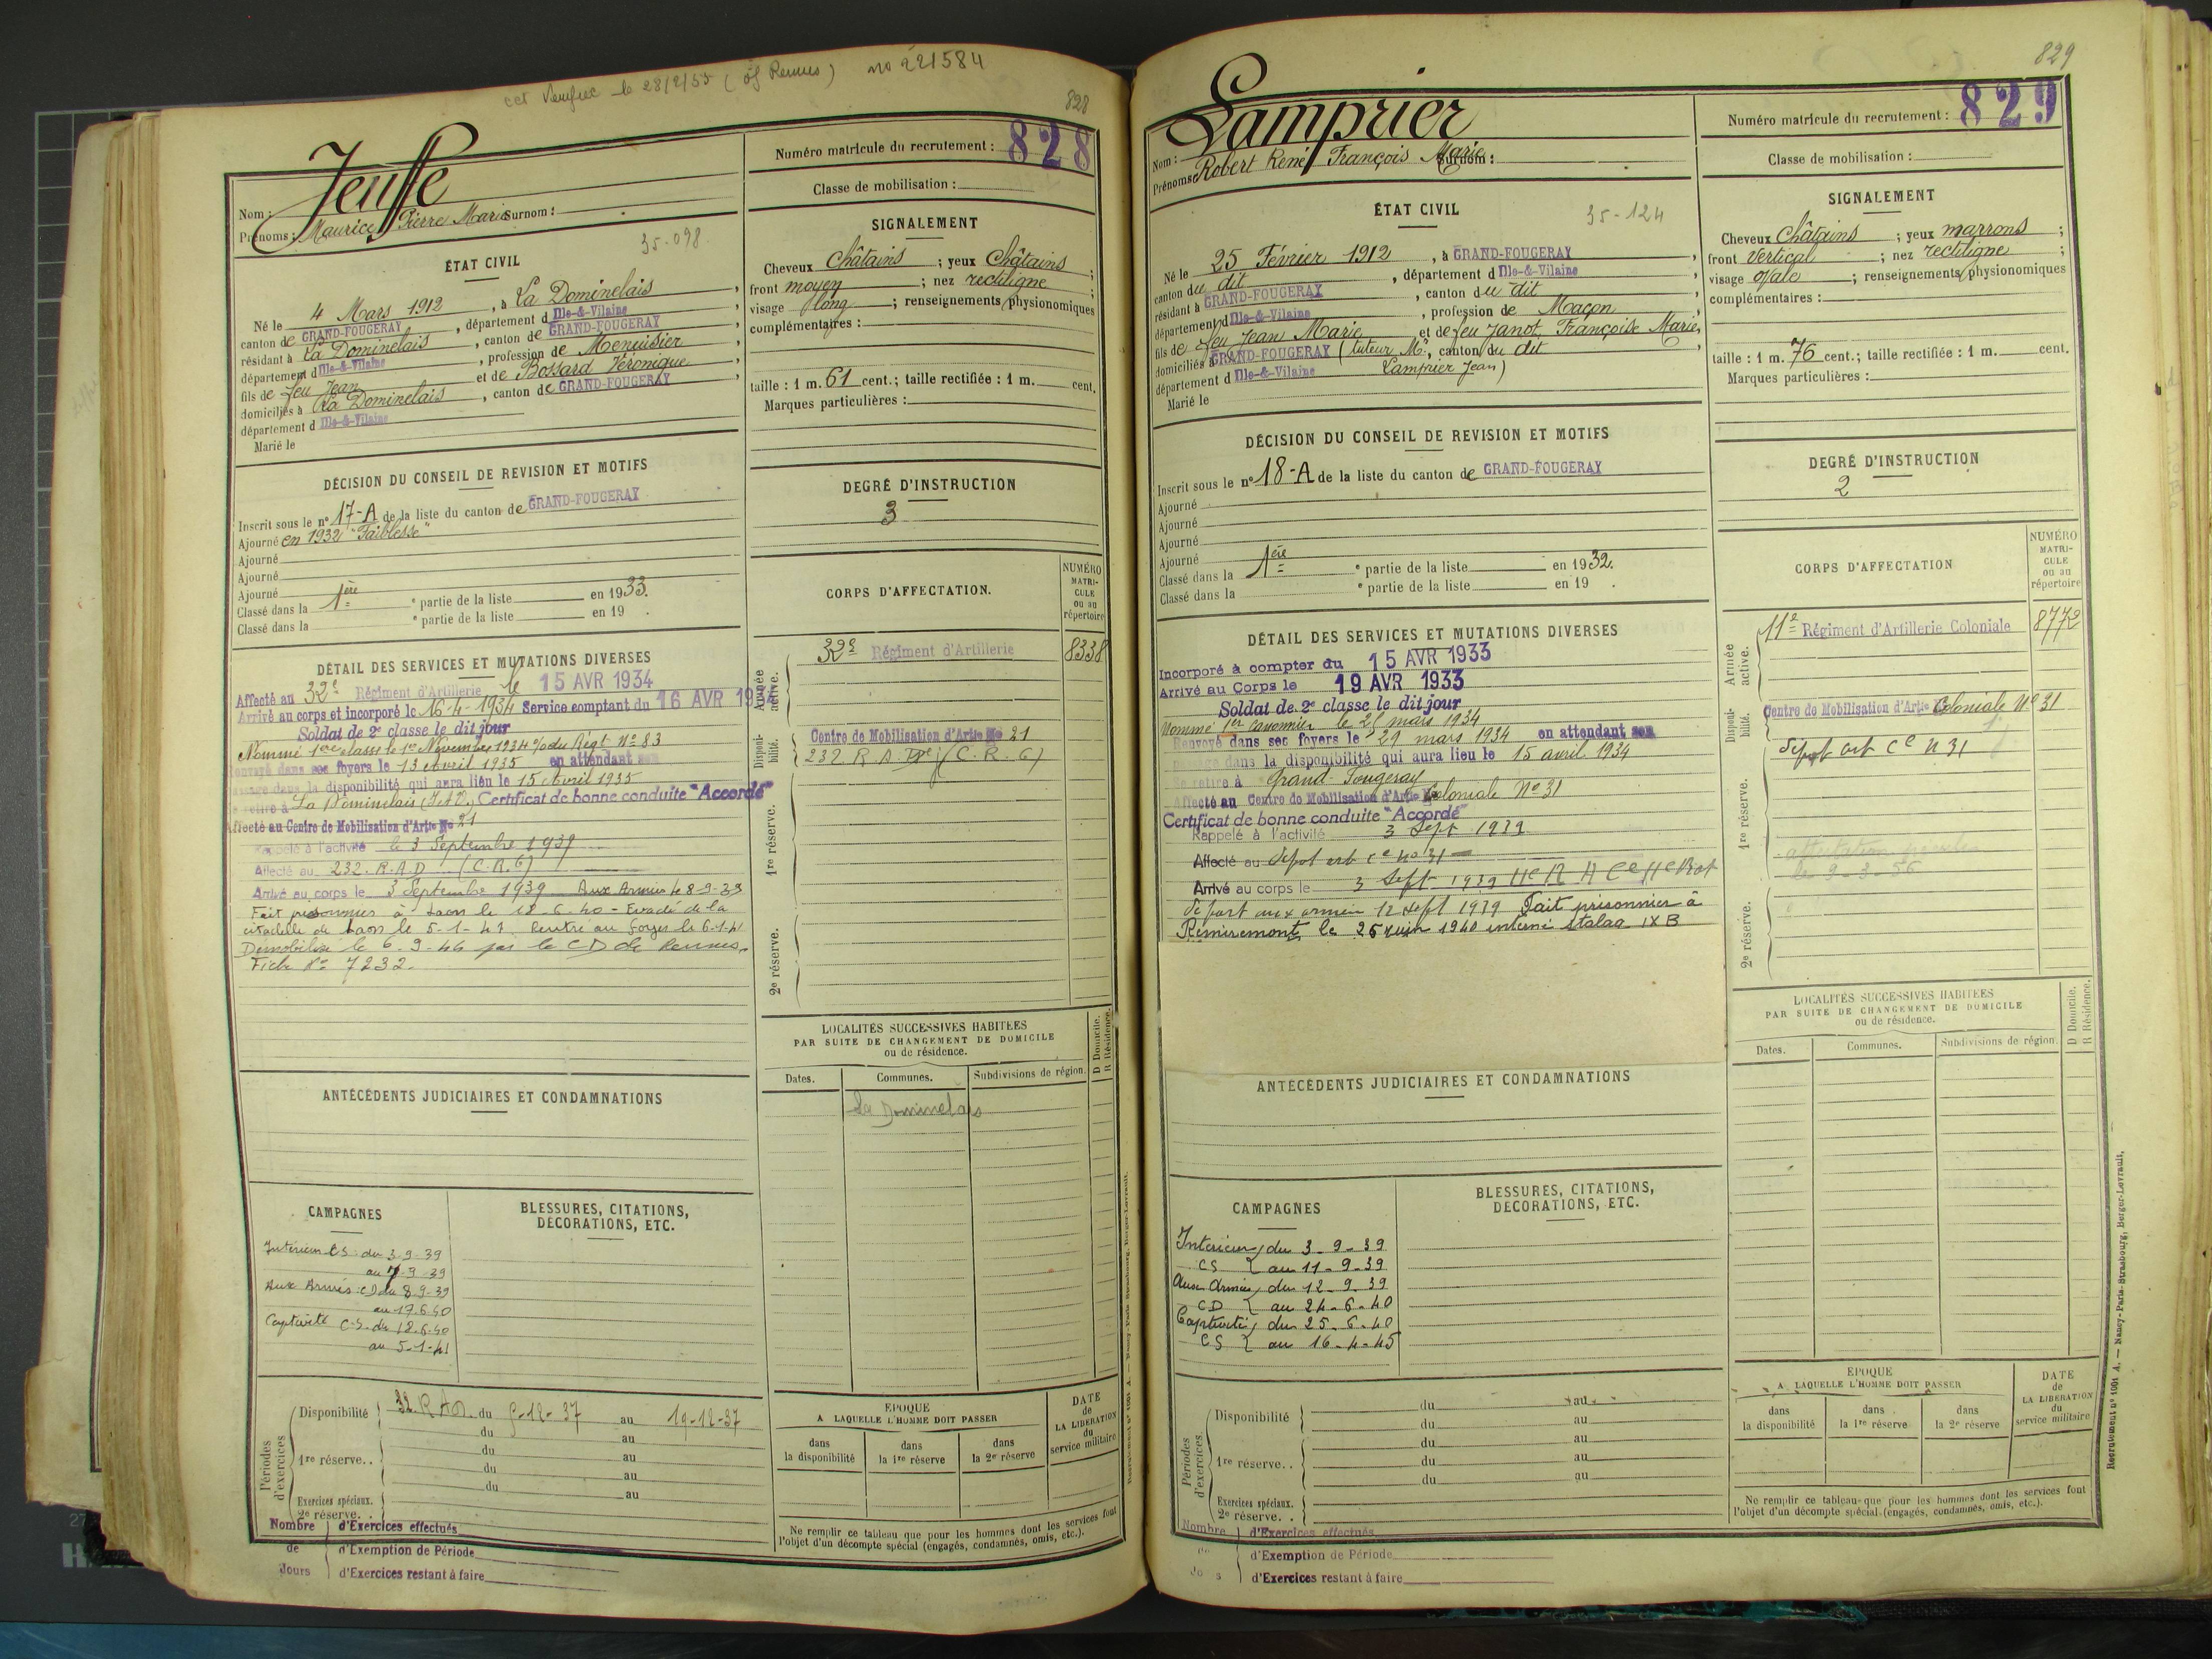 cct Verifiée le 28/2/55 (of Rennes) no 221584
828
Jeuffe
Nom :
Prénoms : Maurice Pierre Marie Surnom :
35-098
ÉTAT CIVIL
Né le 4 Mars 1912, à La Dominelais,
canton de GRAND-FOUGERAY, département d Ille-&-Vilaine
résidant à La Dominelais, canton de GRAND-FOUGERAY,
département d Ille-&-Vilaine, profession de Menuisier
fils de feu Jean et de Bossard Véronique,
domiciliés à La Dominelais, canton de GRAND-FOUGERAY,
département d Ille-&-Vilaine
Marié le
DÉCISION DU CONSEIL DE REVISION ET MOTIFS
Inscrit sous le n° 17-A de la liste du canton de GRAND-FOUGERAY
Ajourné en 1932 "Faiblesse"
Ajourné
Ajourné
Ajourné
Classé dans la 1ère e partie de la liste en 1933.
Classé dans la e partie de la liste en 19 .
DÉTAIL DES SERVICES ET MUTATIONS DIVERSES
Affecté au 32e Régiment d'Artillerie le 15 AVR 1934
Arrivé au corps et incorporé le 16-4-1934 Service comptant du 16 AVR 19
Soldat de 2e classe le dit jour
Nommé 1ère classe le 1er Novembre 1934 o/o du Régt No 83
Renvoyé dans ses foyers le 13 Avril 1935 en attendant son
passage dans la disponibilité qui aura lieu le 15 Avril 1935
Se retire à La Dominelais (I et V) Certificat de bonne conduite "Accordé"
Affecté au Centre de Mobilisation d'Artie No 21
Rappelé à l'activité le 3 Septembre 1939
Affecté au 232. R.A.D (C.R.6)
Arrivé au corps le 3 Septembre 1939 Aux Armées le 8-9-39
Fait prisonnier à Laon le 18-6-40 - Evadé de la
citadelle de Laon le 5-1-41 Rentré au foyer le 6-1-41
Démobilisé le 6-9-46 par le CD de Rennes.
Fiche No 7232.
ANTÉCÉDENTS JUDICIAIRES ET CONDAMNATIONS
CAMPAGNES
Intérieur CS : du 3-9-39
au 7-9-39
Aux Armées : CD du 8-9-39
au 17.6.40
Captivité C.S. du 18.6.40
au 5-1-41
BLESSURES, CITATIONS,
DÉCORATIONS, ETC.
Périodes d'exercices
Disponibilité 32. R. A. D. du -12-37 au 19-12-37
du au
1re réserve.. du au
du au
du au
Exercices spéciaux.
2e réserve. .
Nombre de Jours
d'Exercices effectués
d'Exemption de Période
d'Exercices restant à faire
Numéro matricule du recrutement : 828
Classe de mobilisation :
SIGNALEMENT
Cheveux Châtains ; yeux Châtains ;
front moyen ; nez rectiligne ;
visage long ; renseignements physionomiques
complémentaires :
taille : 1 m. 61 cent.; taille rectifiée : 1 m. cent.
Marques particulières :
DEGRÉ D'INSTRUCTION
3
CORPS D'AFFECTATION.
NUMÉRO MATRI-CULE ou au répertoire
Armée active.
32e Régiment d'Artillerie 8338
Disponi-bilité.
Centre de Mobilisation d'Artie No 21
232 R.A. (C.R.6)
1re réserve.
2e réserve.
LOCALITÉS SUCCESSIVES HABITÉES
PAR SUITE DE CHANGEMENT DE DOMICILE
ou de résidence.
D Domicile.
R Résidence.
Dates. Communes. Subdivisions de région.
La Dominelais
ÉPOQUE
A LAQUELLE L'HOMME DOIT PASSER
DATE de LA LIBÉRATION du service militaire
dans la disponibilité
dans la 1re réserve
dans la 2e réserve
Ne remplir ce tableau que pour les hommes dont les services font
l'objet d'un décompte spécial (engagés, condamnés, omis, etc.).
829
Lamprier
Nom :
Prénoms : Robert René François Marie Surnom :
35-124
ÉTAT CIVIL
Né le 25 Février 1912, à GRAND-FOUGERAY,
canton du dit, département d Ille-&-Vilaine
résidant à GRAND-FOUGERAY, canton du dit,
département d Ille-&-Vilaine, profession de Maçon
fils de feu Jean Marie et de feu Janot Françoise Marie,
domiciliés à GRAND-FOUGERAY (tuteur M., canton du dit,
département d Ille-&-Vilaine Lamprier Jean)
Marié le
DÉCISION DU CONSEIL DE REVISION ET MOTIFS
Inscrit sous le n° 18-A de la liste du canton de GRAND-FOUGERAY
Ajourné
Ajourné
Ajourné
Ajourné
Classé dans la 1ère e partie de la liste en 1932.
Classé dans la e partie de la liste en 19 .
DÉTAIL DES SERVICES ET MUTATIONS DIVERSES
Incorporé à compter du 15 AVR 1933
Arrivé au Corps le 19 AVR 1933
Soldat de 2e classe le dit jour
Nommé 1er canonnier le 21 mars 1934
Renvoyé dans ses foyers le 29 mars 1934 en attendant son
passage dans la disponibilité qui aura lieu le 15 avril 1934
Se retire à Grand-Fougeray
Affecté au Centre de Mobilisation d'Artie Coloniale No 31
Certificat de bonne conduite "Accordé"
Rappelé à l'activité 3 Sept 1939
Affecté au dépot art ce no 31
Arrivé au corps le 3 Sept 1939 11e R A Ce
Départ aux armées 12 Sept 1939 Fait prisonnier à
Remiremont le 25 juin 1940 interné stalag IX B
ANTÉCÉDENTS JUDICIAIRES ET CONDAMNATIONS
CAMPAGNES
Intérieur du 3-9-39
CS au 11-9-39
Aux Armées du 12-9-39
CD au 24-6-40
Captivité du 25-6-40
CS au 16-4-45
BLESSURES, CITATIONS,
DÉCORATIONS, ETC.
Périodes d'exercices.
Disponibilité du au
du au
1re réserve. . du au
du au
du au
Exercices spéciaux.
2e réserve. .
Nombre de Jours
d'Exercices effectués
d'Exemption de Période
d'Exercices restant à faire
Numéro matricule du recrutement : 829
Classe de mobilisation :
SIGNALEMENT
Cheveux Châtains ; yeux marrons ;
front vertical ; nez rectiligne ;
visage ovale ; renseignements physionomiques
complémentaires :
taille : 1 m. 76 cent.; taille rectifiée : 1 m. cent.
Marques particulières :
DEGRÉ D'INSTRUCTION
2
CORPS D'AFFECTATION
NUMÉRO MATRI-CULE ou au répertoire
Armée active.
11e Régiment d'Artillerie Coloniale 8772
Disponi-bilité.
Centre de Mobilisation d'Artie Coloniale No 31
Dépot art Ce n 31
1re réserve.
attestation
le 9-3-56
2e réserve.
LOCALITÉS SUCCESSIVES HABITÉES
PAR SUITE DE CHANGEMENT DE DOMICILE
ou de résidence.
D Domicile.
R Résidence.
Dates. Communes. Subdivisions de région.
ÉPOQUE
A LAQUELLE L'HOMME DOIT PASSER
DATE de LA LIBÉRATION du service militaire
dans la disponibilité
dans la 1re réserve
dans la 2e réserve
Ne remplir ce tableau que pour les hommes dont les services font
l'objet d'un décompte spécial (engagés, condamnés, omis, etc.).
Recrutement n° 1001 A. — Nancy-Paris-Strasbourg, Berger-Levrault.